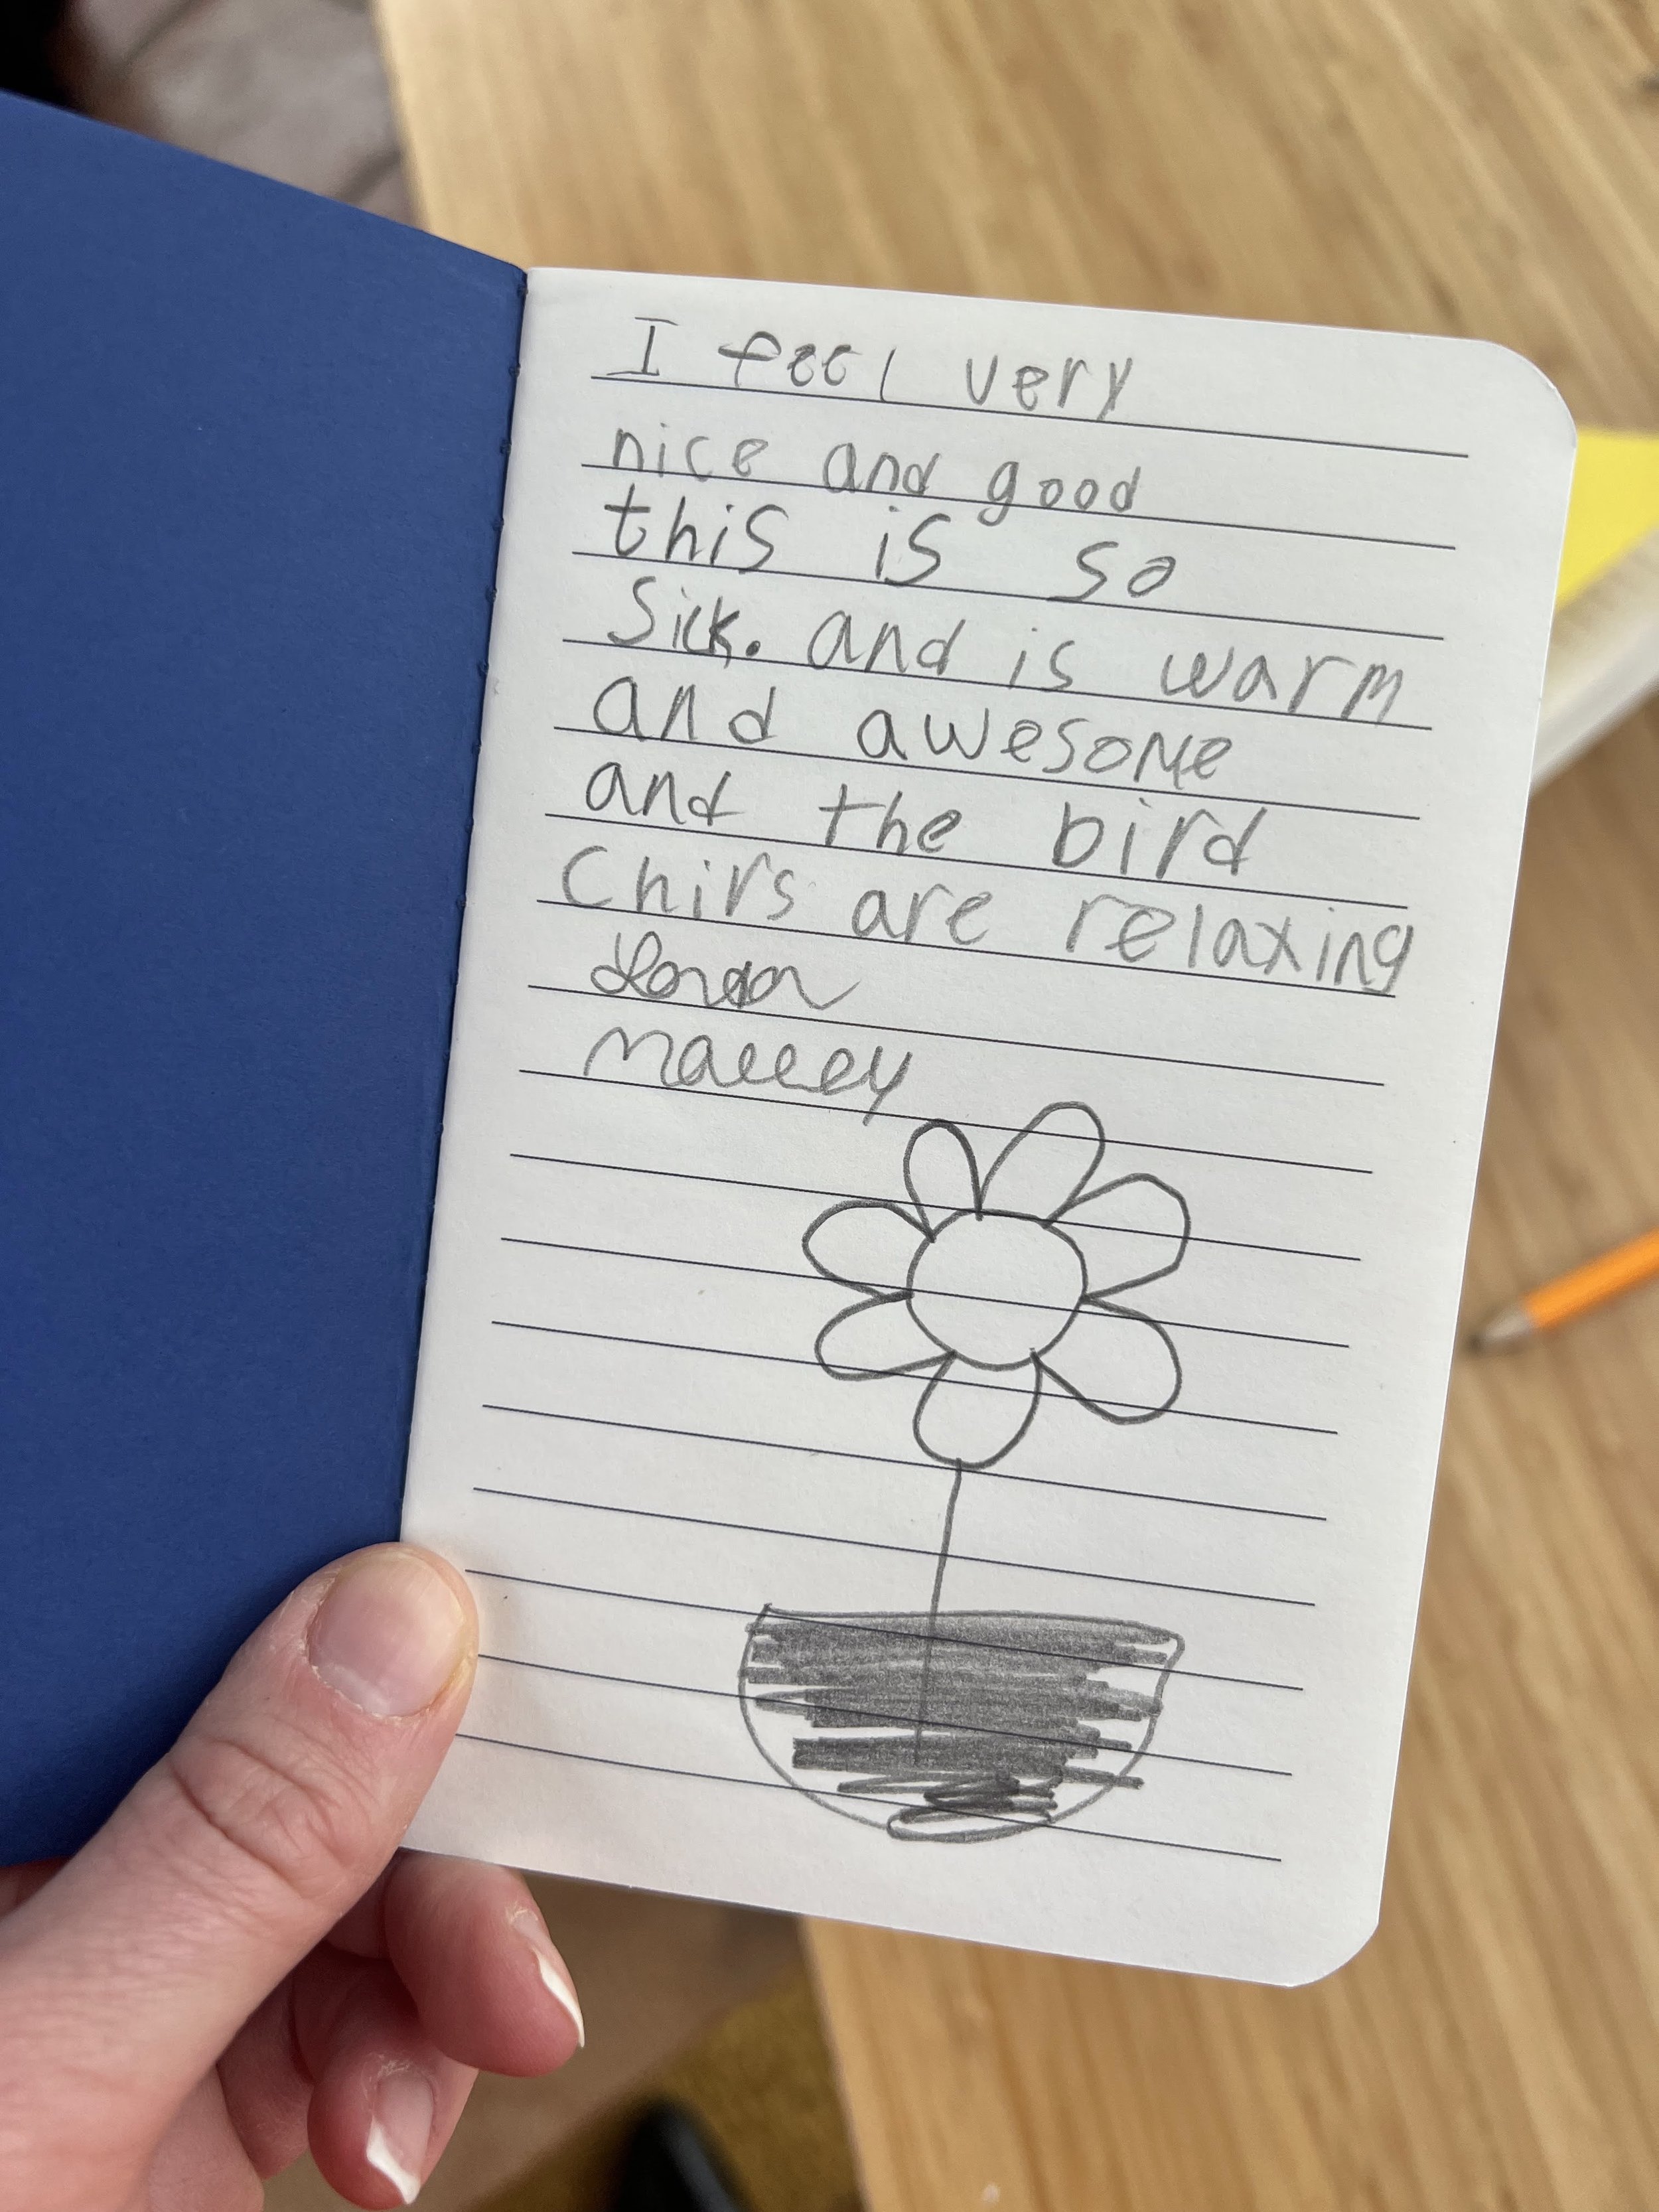 I feel very
nice and good
this is so
Sick. and is warm
and awesome
and the bird
Chirs are relaxing